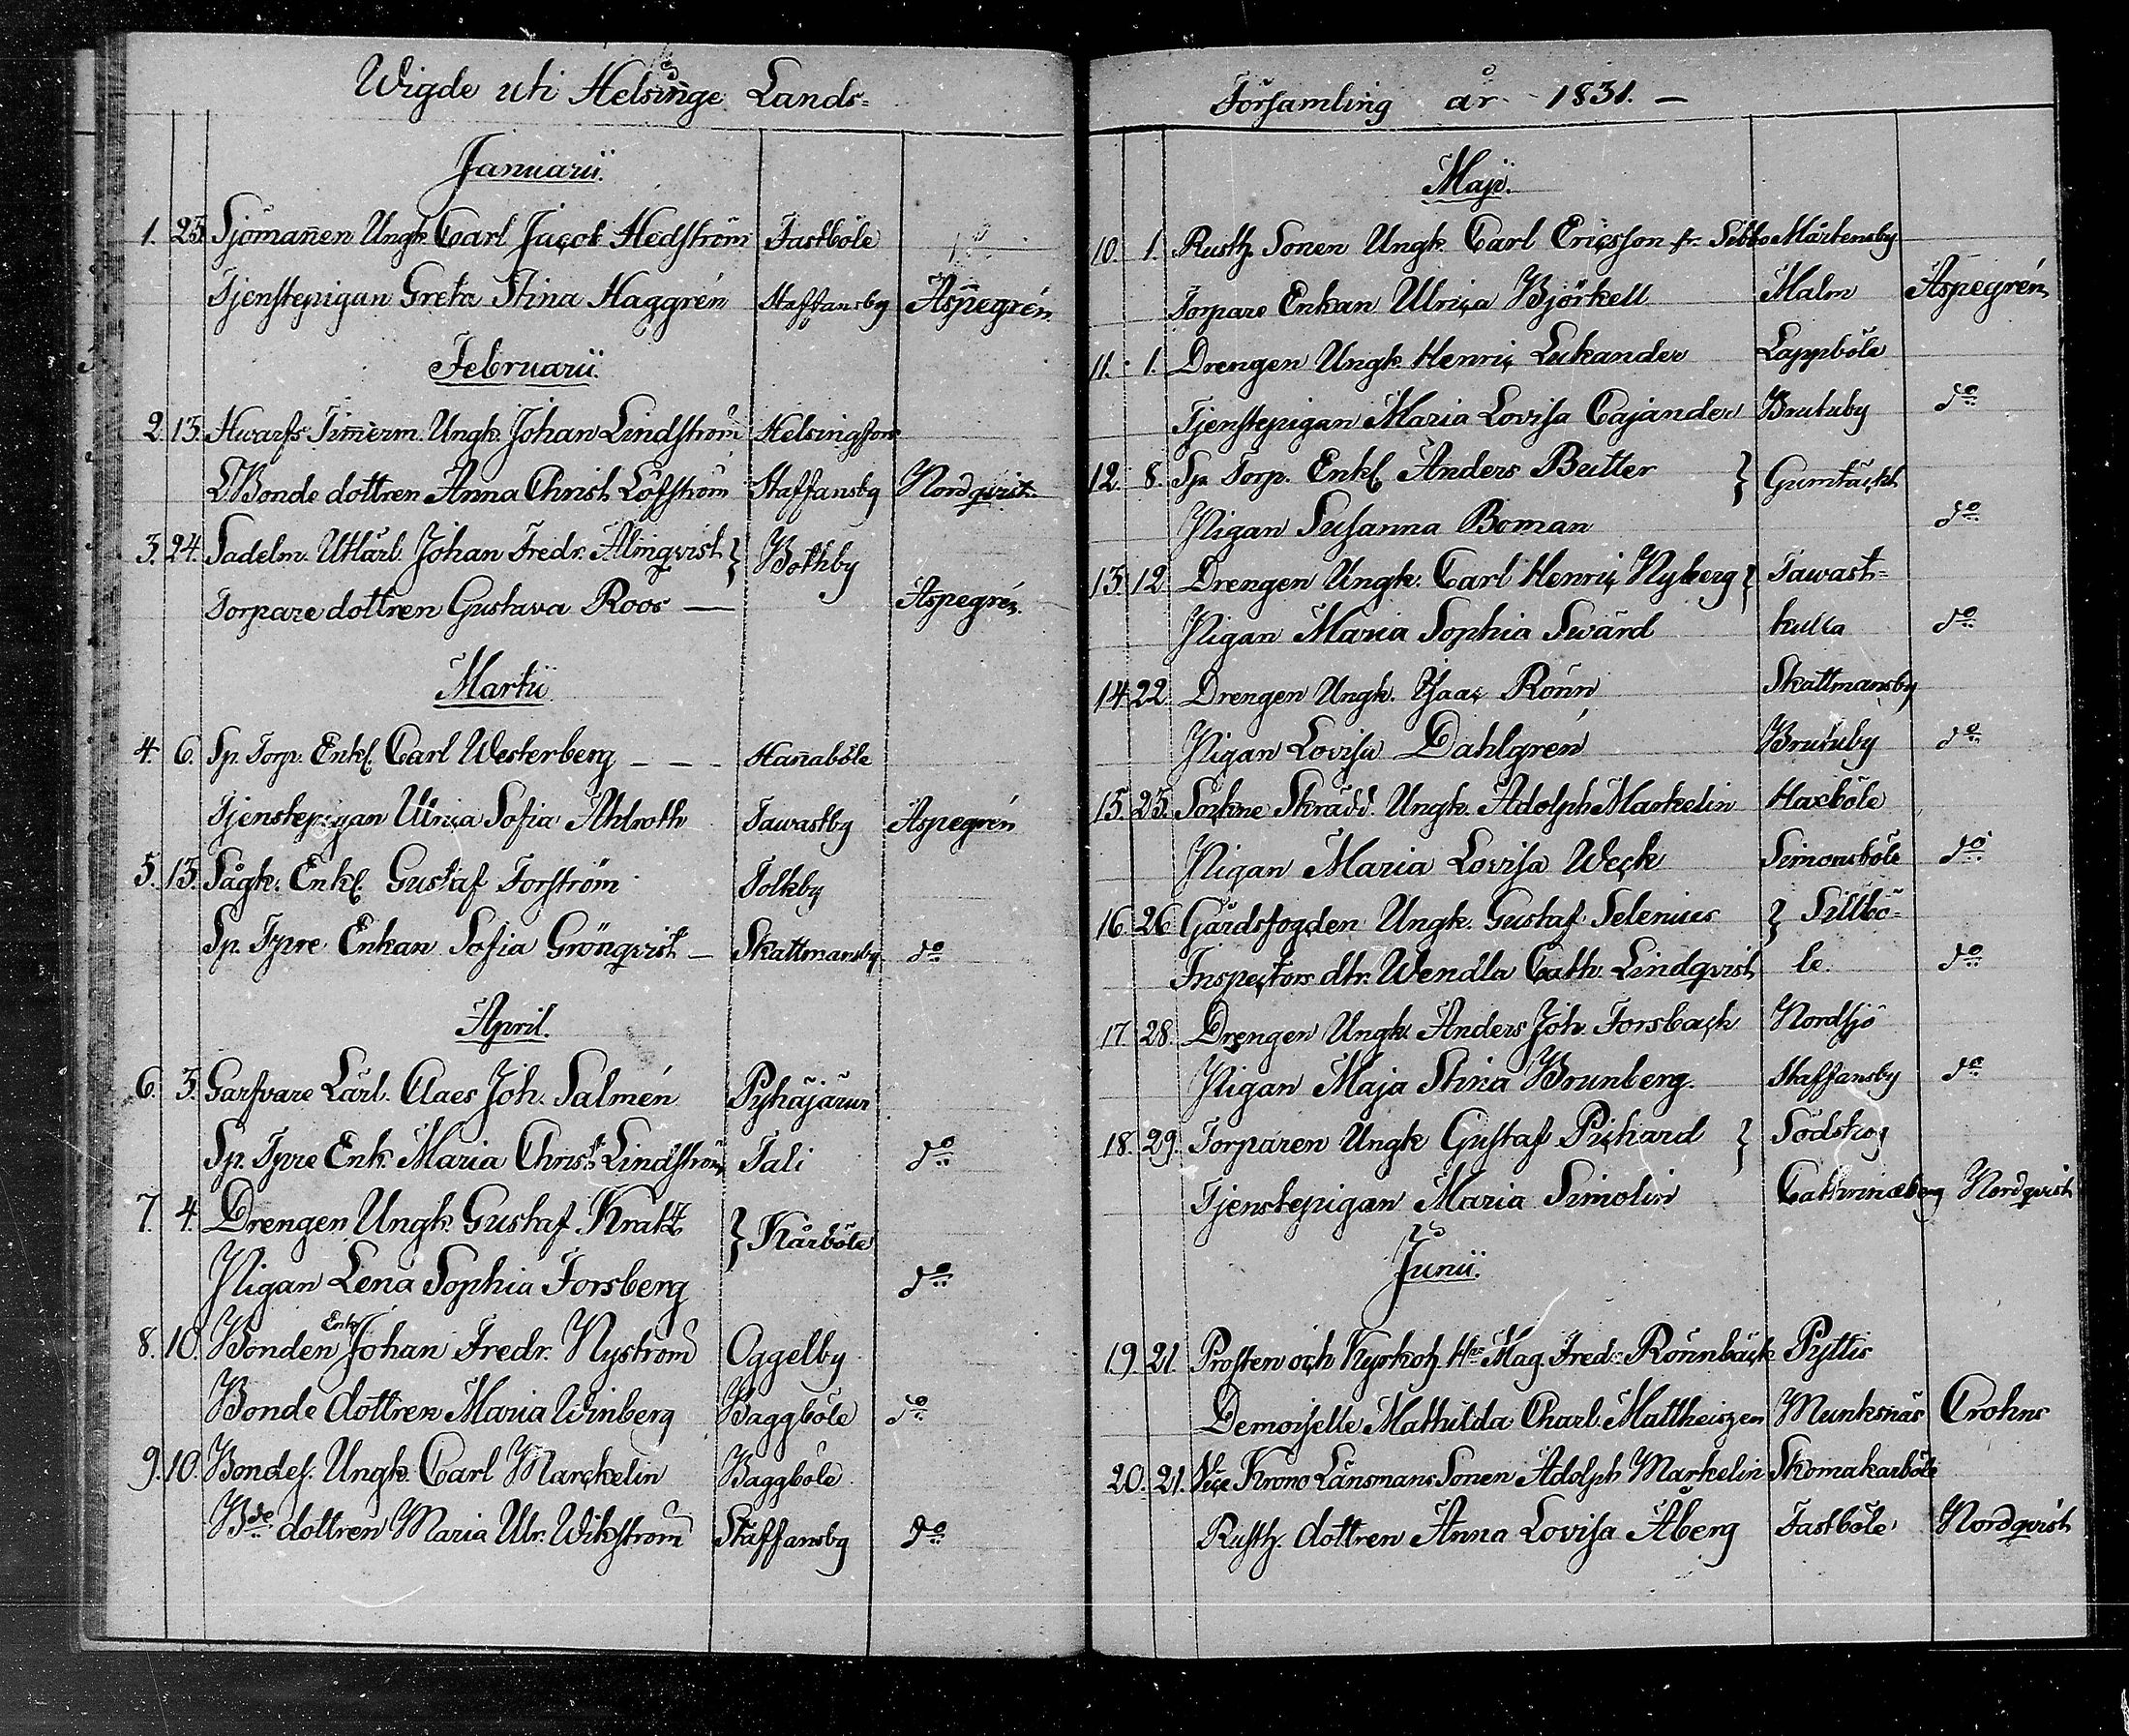 Wigde uti Helsinge Lands=
Januarii.
1. 23. Sjömannen Ungk. Carl Jacob Hedström Fastböle
Tjenstepigan Greta Stina Haggrén Staffansby Aspegrén
Februarii.
2. 13. Hwarfs Timerm. Ungk. Johan Lindström Helsingfors
L Bonde dottren Anna Christ. Löfström Staffansby Nordqvist.
3. 24. Sadelm. Utlärl. Johan Fredr. Almqvist } Bothby
Torpare dottren Gustava Roos — Aspegrén
Martii
4. 6. Sp. Torp. Enkl. Carl Westerberg - - - Hannaböle
Tjenstepigan Ulrica Sofia Ahlroth Tawastby Aspegrén
5. 13. Sågk. Enkl. Gustaf Forström Tolkby
Sp. Tpre Enkan Sofia Grönqvist - Skattmansby do
April.
6. 3. Garfvare Lärl. Claes Joh. Salmén Pyhäjärvi
Sp. Tpre Enk. Maria Christ. Lindström Tali do
7. 4. Drengen Ungk. Gustaf Kraft } Kårböle
Pigan Lena Sophia Forsberg do
8. 10. Bonden Enkl. Johan Fredr. Nyström Oggelby
Bonde dottren Maria Winberg Baggböle do
9. 10. Bondes. Ungk. Carl Marckelin Baggböle
Bde dottren Maria Ulr. Wikström Staffansby do
Församling år - 1831. -
Maji.
10. 1. Rusth. Sonen Ungk. Carl Ericsson fr. Sibbo Mårtensby
Torpare Enkan Ulrica Björkell Malm Aspegrén
11. 1. Drengen Ungk. Henric Lukander Lappböle
Tjenstepigan Maria Lovisa Cajander Brutuby do
12. 8. Sp. Torp. Enkl. Anders Butter } Gumtäckt
Pigan Susanna Boman do
13. 12. Drengen Ungk. Carl Henric Nyberg } Tawast=
Pigan Maria Sophia Swärd kulla do
14. 22. Drengen Ungk. Isaac Rönn Skattmansby
Pigan Lovisa Dahlgrén Brutuby do
15. 23. Sockne Skrädd. Ungk. Adolph Markelin Haxböle
Pigan Maria Lovisa Weck Simonsböle do
16. 26. Gårdsfogden Ungk. Gustaf Selenius } Sillbö=
Inspectors dtr. Wendla Cath. Lindqvist le. do
17. 28. Drengen Ungk. Anders Joh. Forsback Nordsjö
Pigan Maja Stina Brunberg. Staffansby do
18. 29. Torparen Ungk Gustaf Pichard } Södskog
Tjenstepigan Maria Simolin Cathrineberg Nordqvist
Junii.
19. 21. Prosten och Kyrkoh. Her Mag. Fred. Rönnbäck Pyttis
Demoiselle Mathilda Charl. Mattheiszen Munksnäs Crohns
20. 21. Vice Krono Länsmans Sonen Adolph Markelin Skomakarböle
Rusth. dottren Anna Lovisa Åberg Fastböle Nordqvist